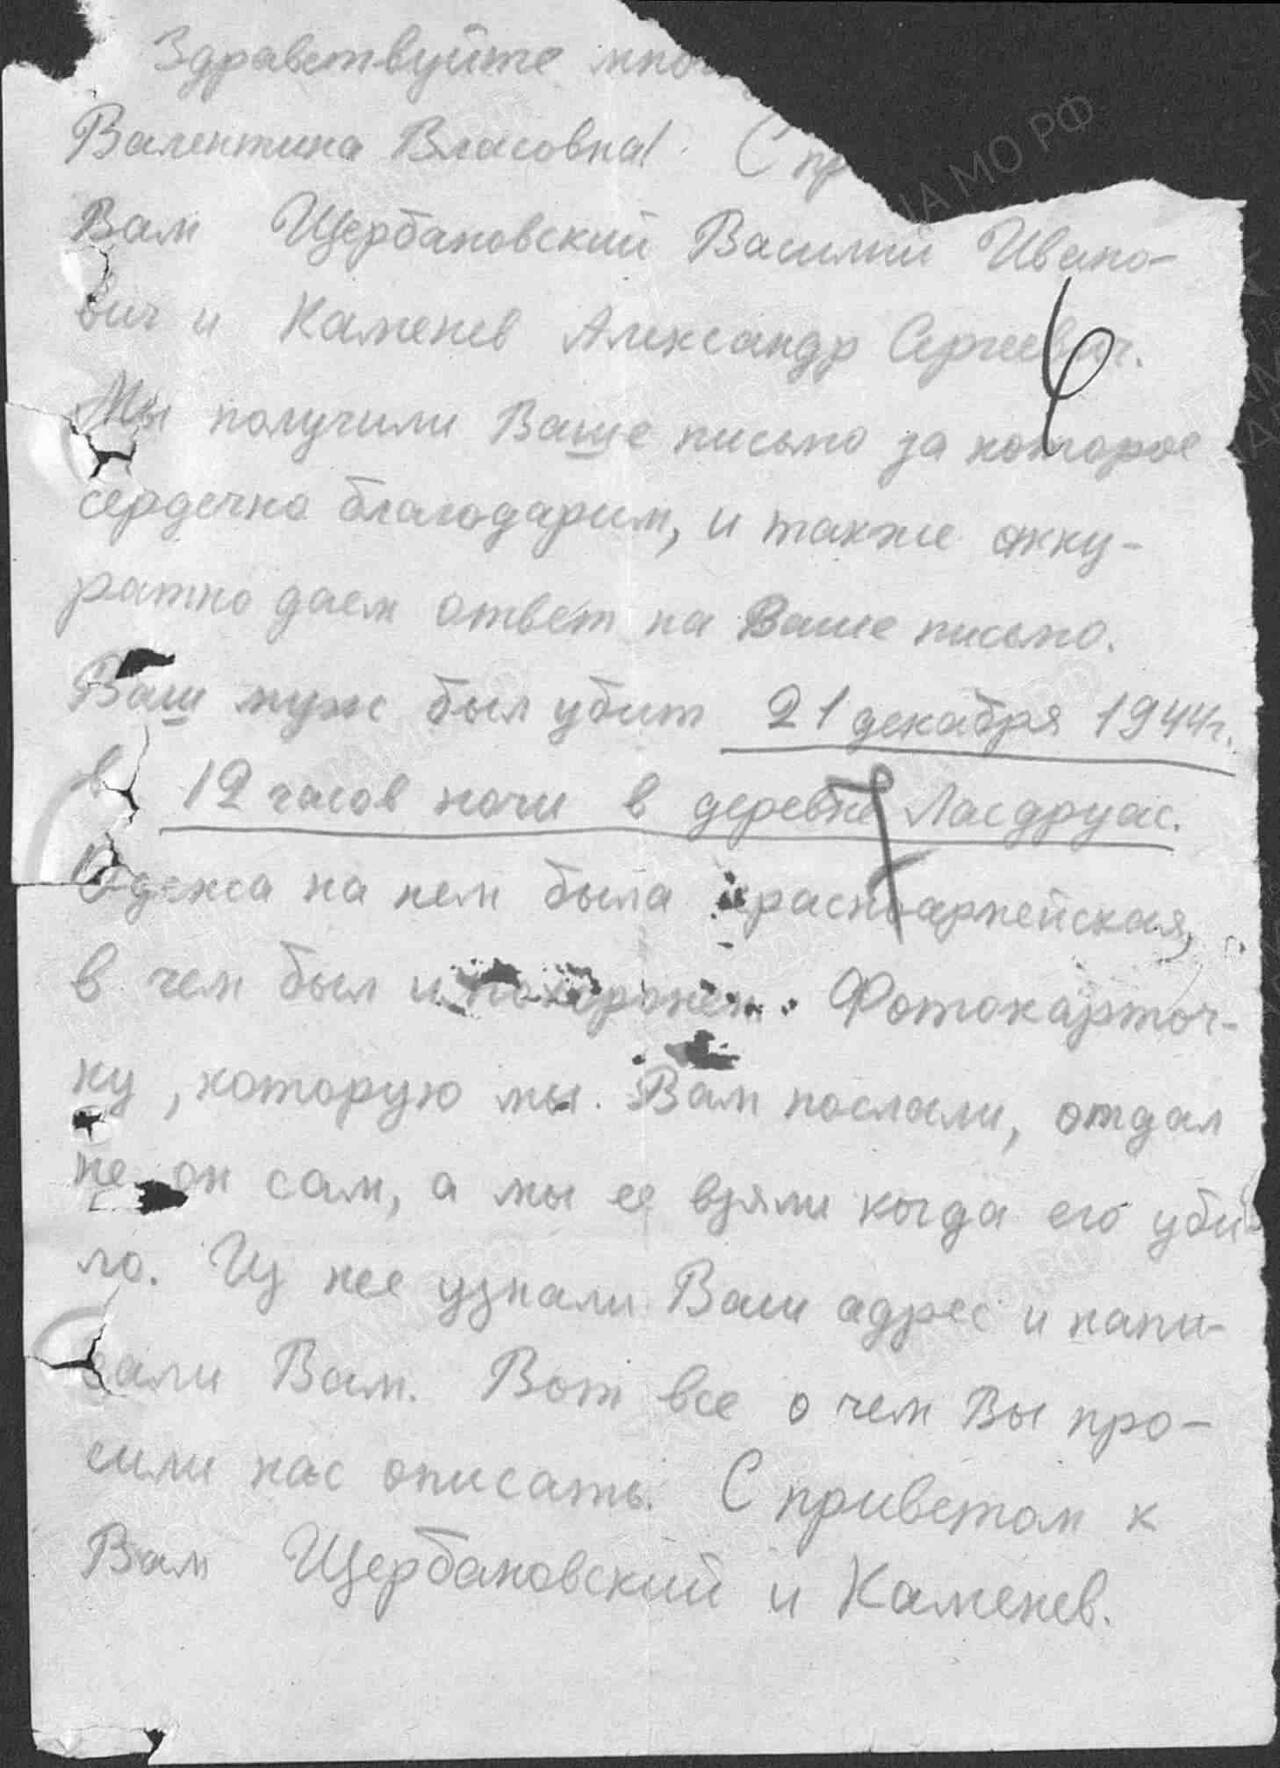 Здравствуйте мно
Валентина Власовна! С пр
Вам Щербановский Василий Ивано-
вич и Каменев Александр Сергеевич.
Мы получили Ваше письмо за которое
сердечно благодарим, и также акку-
ратно даем ответ на Ваше письмо.
Ваш муж был убит 21 декабря 1944г.
в 12 часов ночи в деревне Ласдруас.
Одежа на нем была красноармейская,
в чем был и похоронен. Фотокарточ-
ку, которую мы Вам послали, отдал
не он сам, а мы ее взяли когда его уби
ло. Из нее узнали Ваш адрес и напи-
сали Вам. Вот все о чем Вы про-
сили нас описать. С приветом к
Вам Щербановский и Каменев.